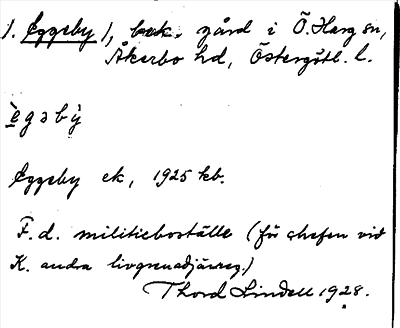 1. Eggeby 1), bek. gård i Ö. Harg sn,
Åkerbo hd, Östergötl. l.
ègəbỳ
Eggeby ek, 1925 kb.
F. d. militieboställe (för chefen vid
K. andra livgrenadjärreg.)
Thord Lindell 1928.